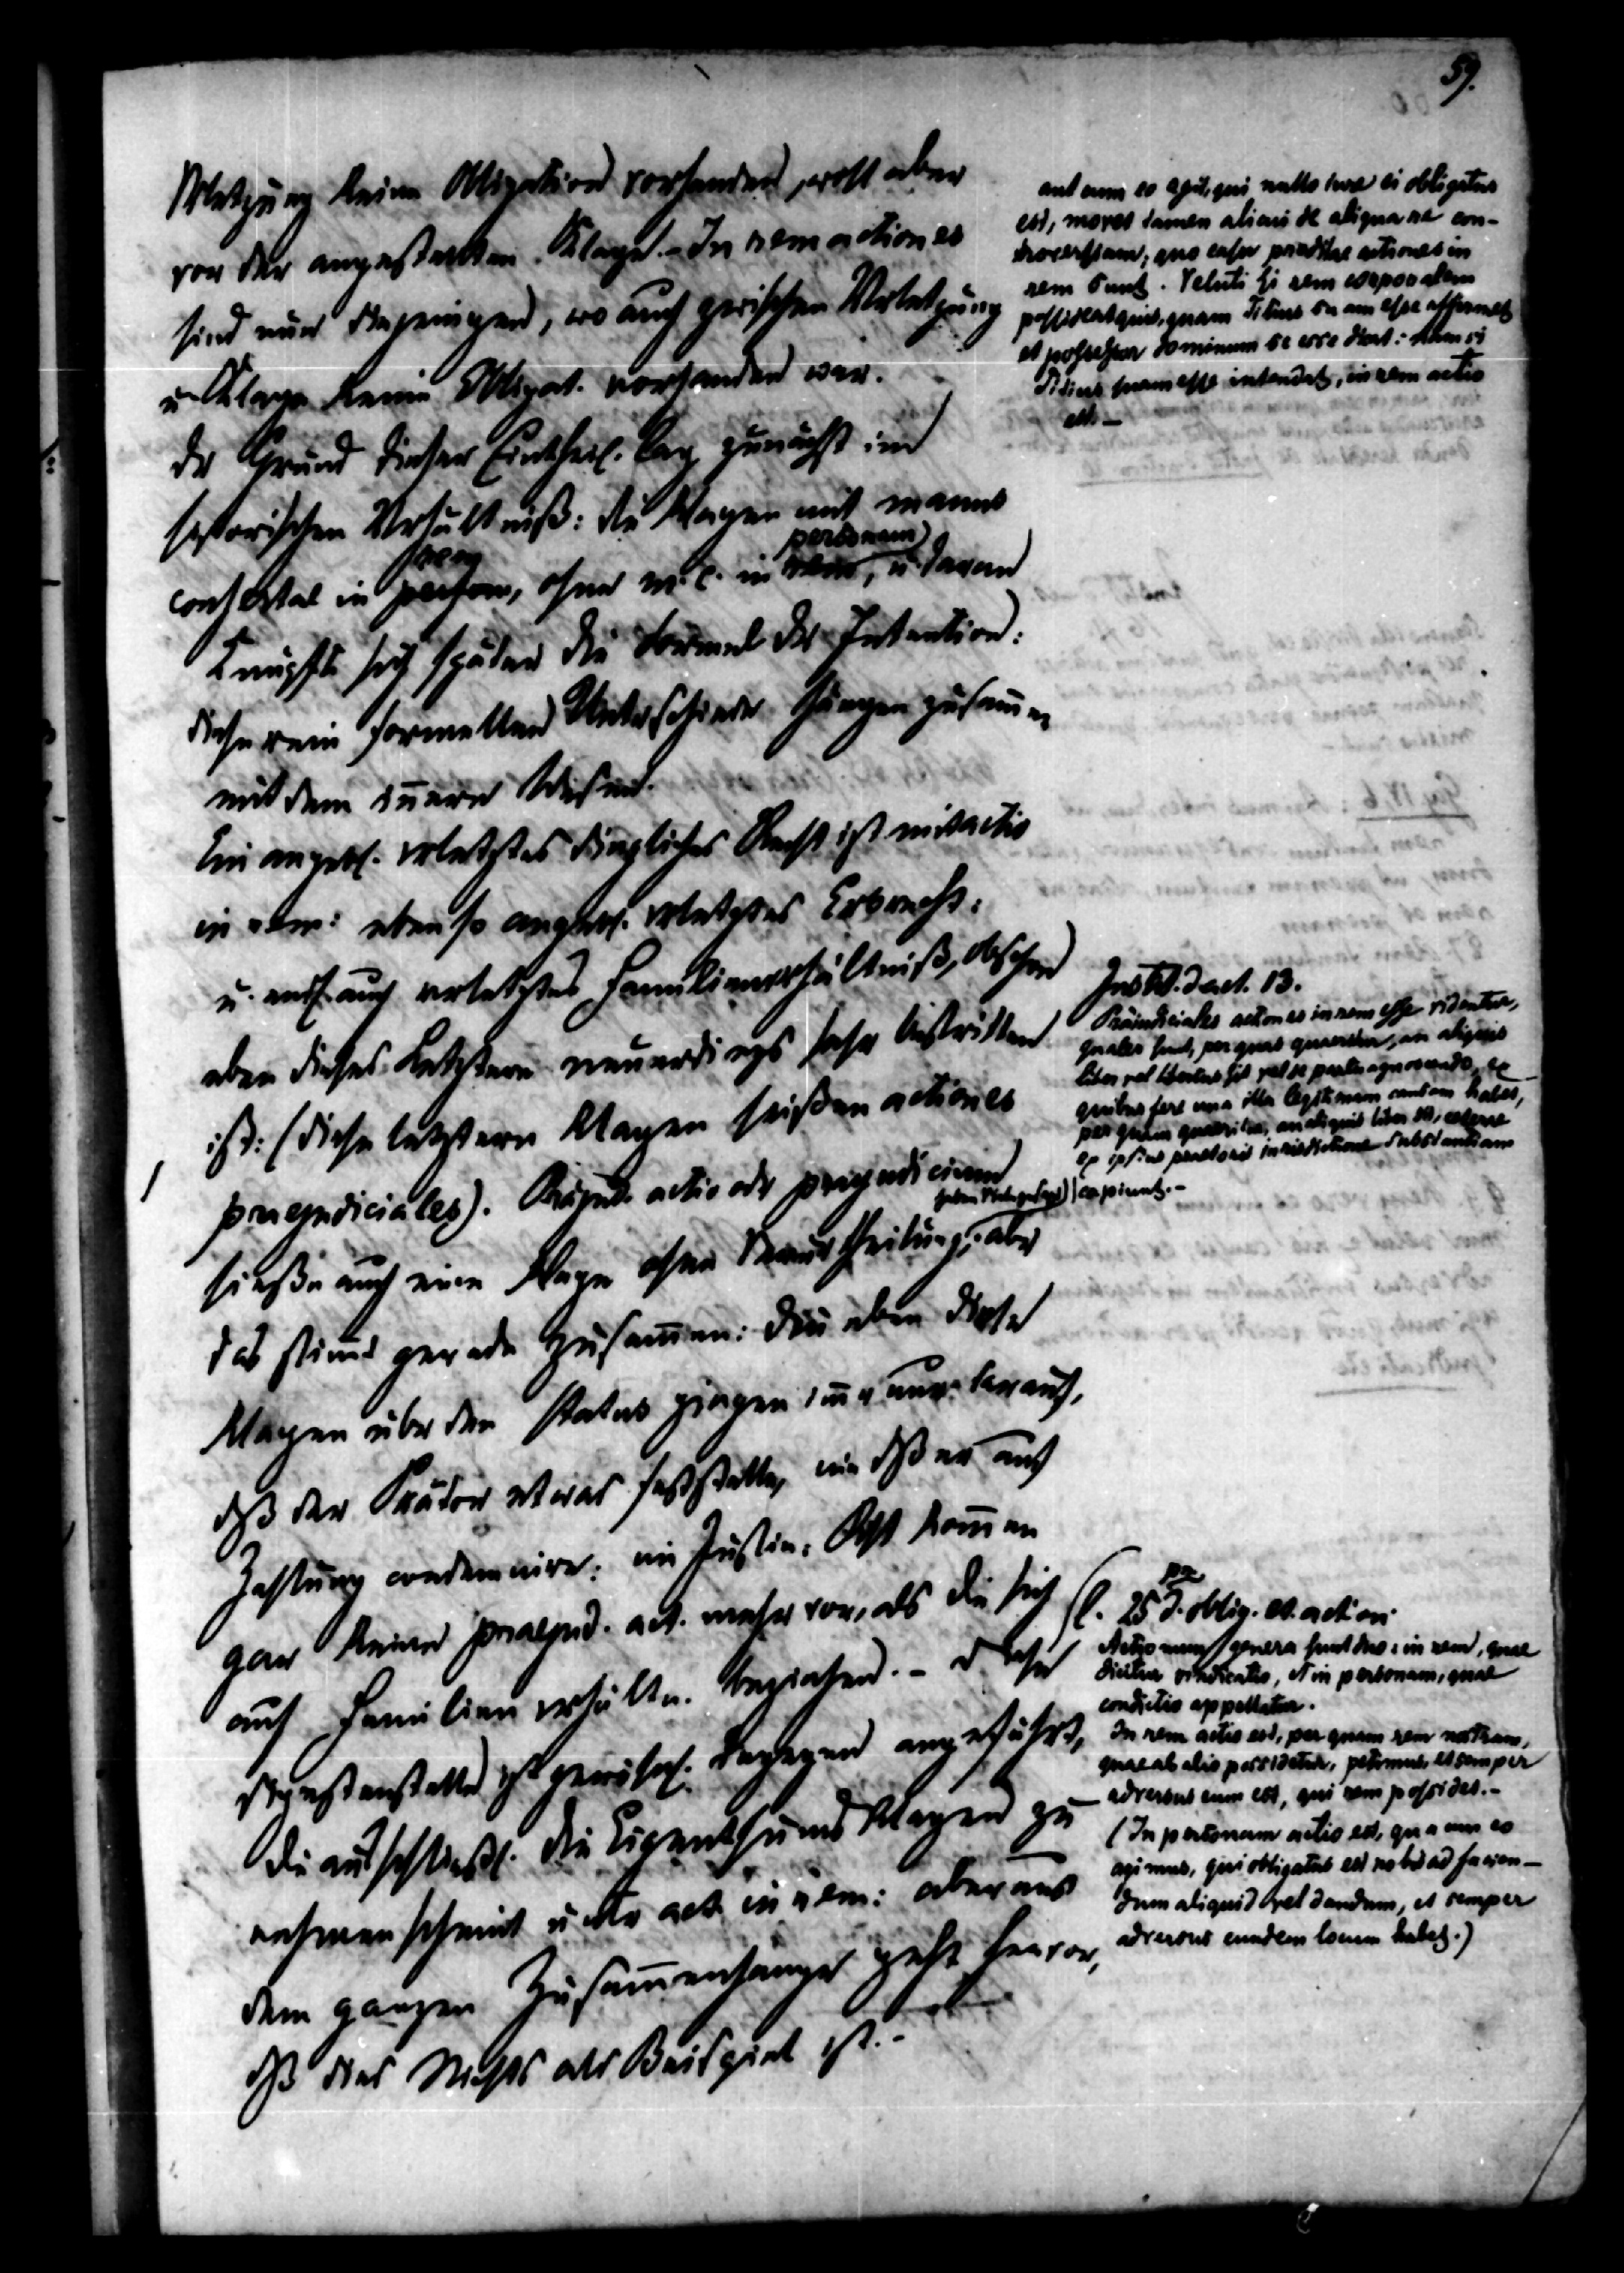 59.
Verletzung keine Obligation vorhanden, wohl aber
vor der angestellten Klage. - In rem actiones
sind nun diejenigen, wo auch zwischen Verletzung
u. Klage keine Obligat. vorhanden war.
der Grund dieser Eintheil. lag zunächst im
historischen Verhältniß: die Klagen mit manus
consertae in rem, ohne m. c. in personam, u. daran
knüpfte sich später die Formel der Intention:
diese rein formellen Unterschiede hängen zusammen
mit dem innern Wesen.
Ein angebl. verletztes dingliches Recht ist mit actio
in rem: ebenso angebl. verletztes Erbrecht:
u. endl. auch verletztes Familienverhältniß, obschon
eben dieses Letztere neuerdings sehr bestritten
ist: (diese letztern Klagen heißen actiones
praejudiciales). Präjud. actio oder praejudicium
hieße auch eine Klage ohne Verurtheilung, aber
das stimmt gerade zusammen: denn eben diese
Klagen über den Status gingen immer nur darauf,
dß der Prätor etwas feststelle, nie dß er auf
Zahlung condemnire: im Justin. Rcht kommen
gar keine praejud. act. mehr vor, als die sich
auf Familienverhältn. beziehen. -
Digestenstelle ist gewöhnl. dagegen angeführt,
die ausschließl. die Eigenthumsklagen zu
nehmen scheint unter act. in rem: aber aus
dem ganzen Zusammenhange geht hervor,
dß dies Nichts als Beispiel ist. -
aut cum eo agit, qui nullo iure ei obligatus
est, movet tamen alicui de aliqua re con-
troversiam; quo casu proditae actiones in
rem sunt. Veluti si rem corporalem
possideat quis, quam Titius suam esse affirmet
et possessor dominum se esse dicat: nam si
Titius suam esse intendat, in rem actio
est. -
Instit. d. act. 13.
Präiudiciales actiones in rem esse videntur,
quales sunt, per quas quaeritur, an aliquis
liber vel libertus sit vel de partu agnoscendo, ex
quibus fere una illa legitimam causam habet,
per quam quaeritur, an aliquis liber sit, ceterae
ex ipsius praetoris iurisdictione substantiam
capiunt. -
l. 25 pr D. oblig. et action.
Actionum genera sunt duo: in rem, quae
dicitur vindicatio, et in personam, quae
condictio appellatur.
In rem actio est, per quam rem nostram,
quae ab alio possidetur, petimus, et semper
adversus eum est, qui rem possidet. -
(In personam actio est, qua cum eo
agimus, qui obligatus est nobis ad facien-
dum aliquid vel dandum, et semper
adversus eundem locum habet.)